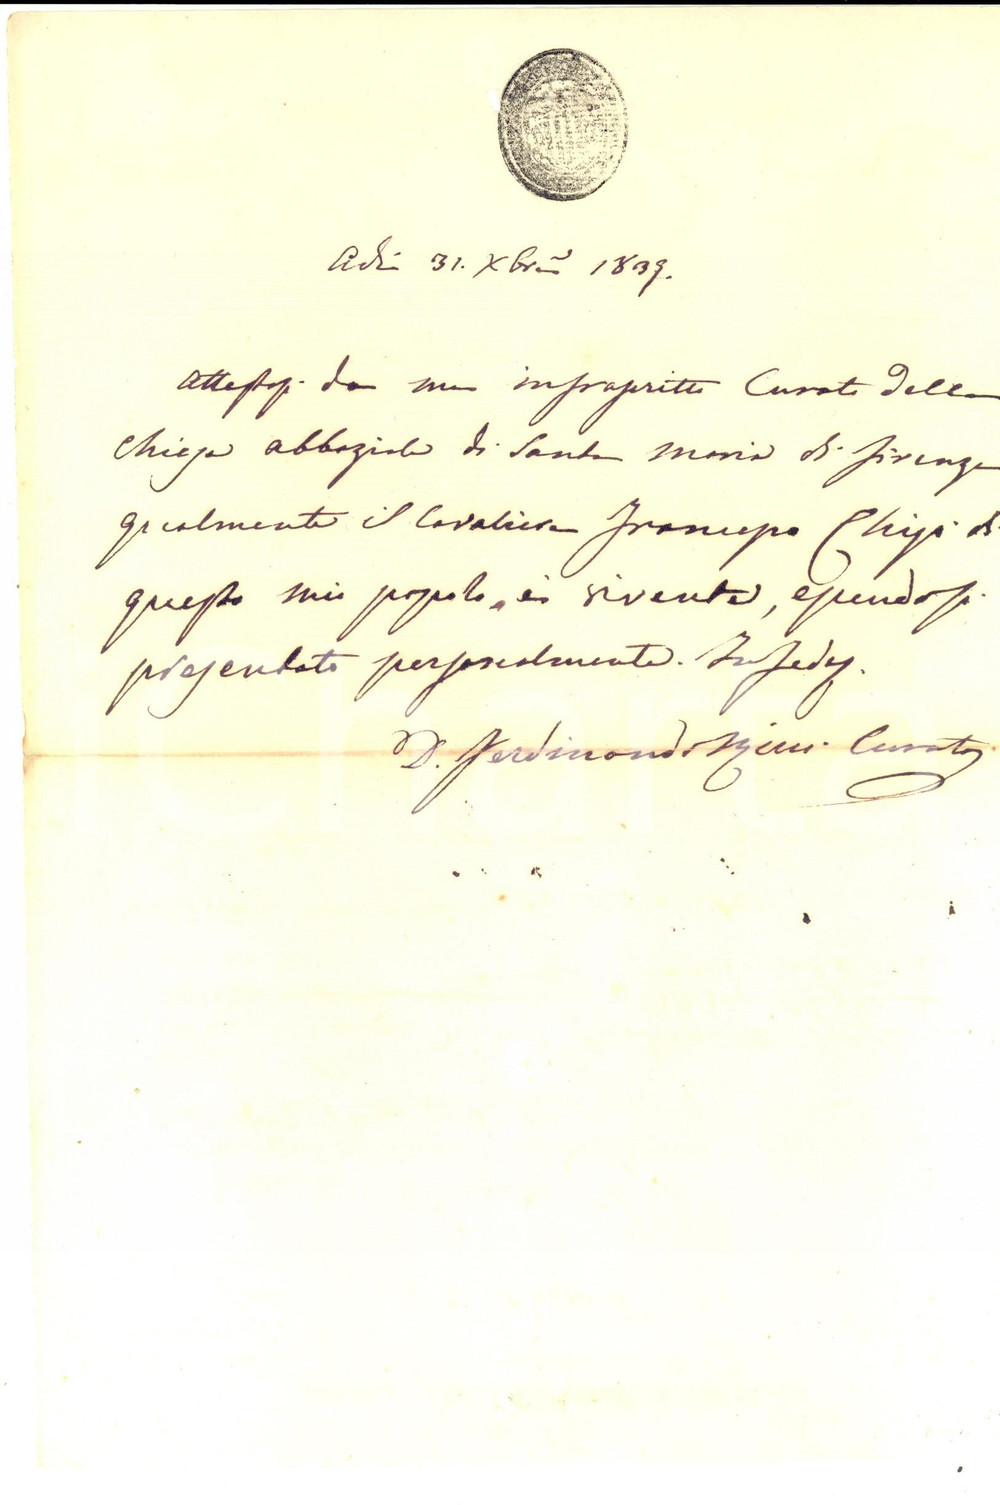 Adì 31. Xbre 1839.
Attestasi da me infrascritto Curato della
Chiesa abbaziale di Santa Maria di Firenze
qualmente il Cavaliere Francesco Chigi di
questo mio popolo, è vivente, essendosi
presentato personalmente. In fede.
D. Ferdinando Curato